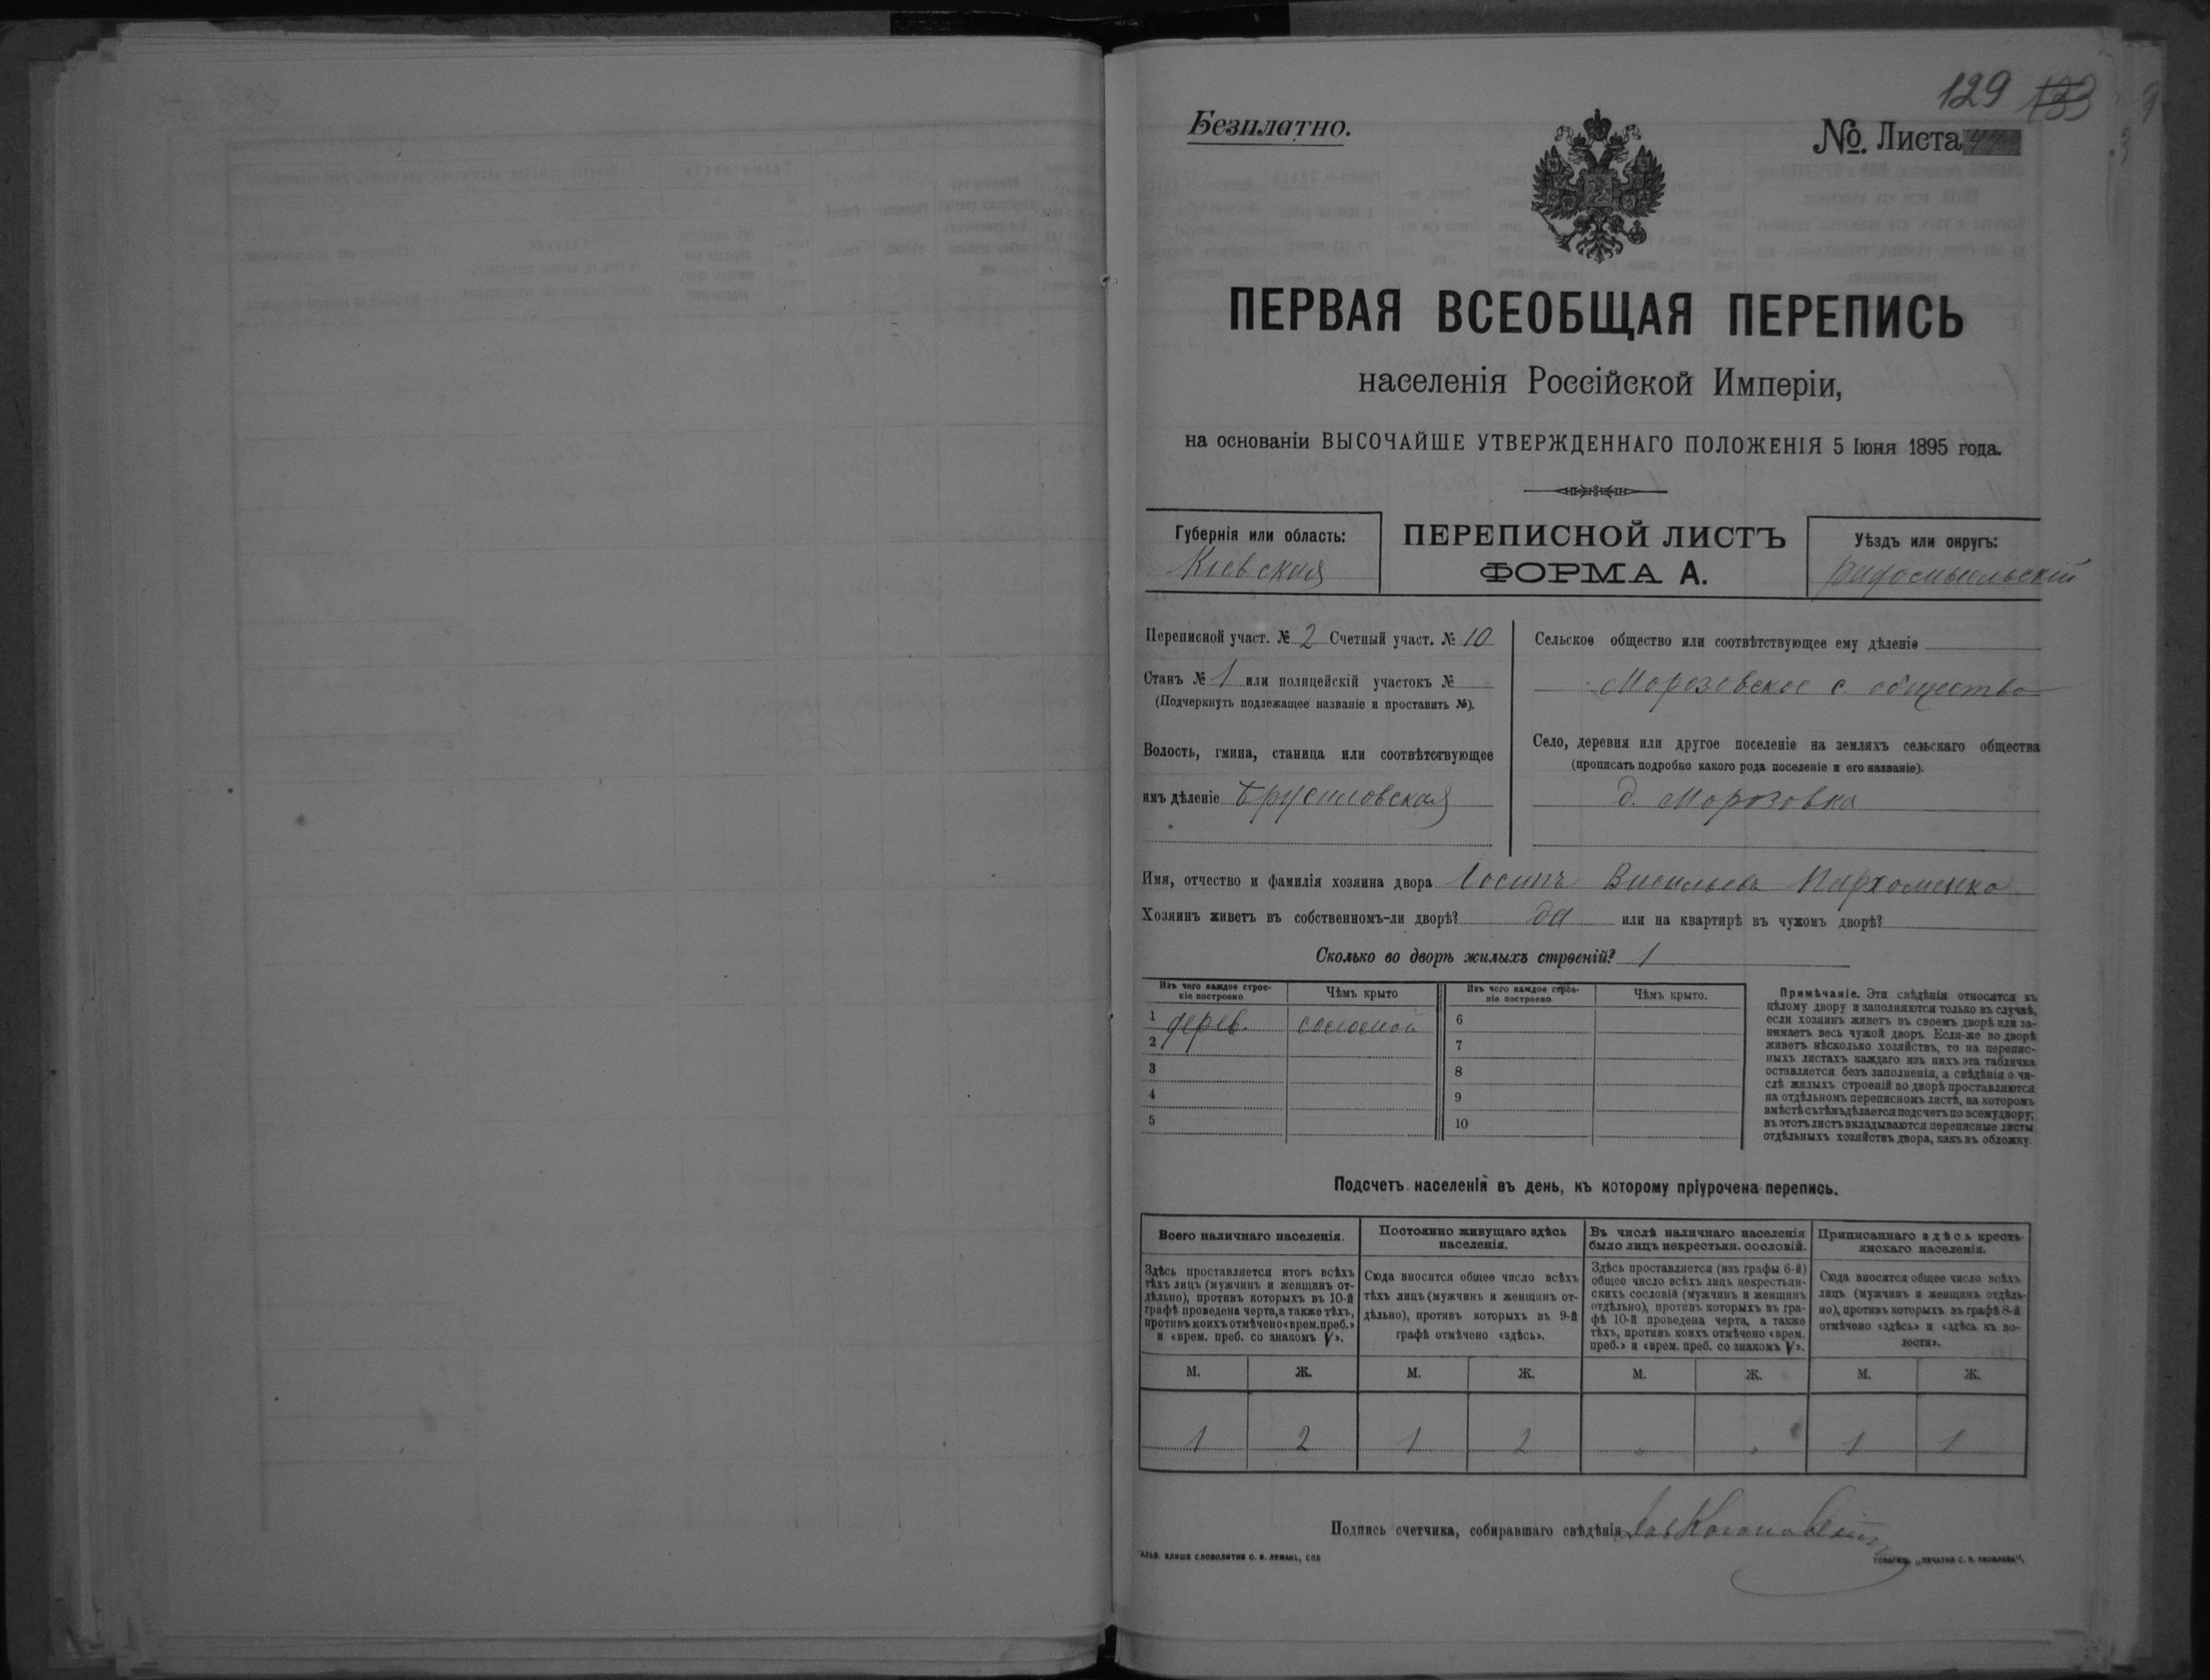 129 133
Безплатно.
№. Листа
ПЕРВАЯ ВСЕОБЩАЯ ПЕРЕПИСЬ
населенія Россійской Имперіи,
на основаніи ВЫСОЧАЙШЕ УТВЕРЖДЕННАГО ПОЛОЖЕНІЯ 5 Іюня 1895 года.
Губернія или область:
Кіевская
ПЕРЕПИСНОЙ ЛИСТЪ
ФОРМА А.
Уѣздъ или округъ:
Радомысльскій
Переписной участ. № 2 Счетный участ. № 10
Станъ № 1 или полицейскій участокъ №
(Подчеркнуть подлежащее названіе и проставить №).
Волость, гмина, станица или соотвѣтствующее
имъ дѣленіе Брусиловская
Сельское общество или соотвѣтствующее ему дѣленіе
Морозовское с. общество
Село, деревня или другое поселеніе на земляхъ сельскаго общества
(прописать подробно какого рода поселеніе и его названіе).
д. Морозовка
Имя, отчество и фамилія хозяина двора Іосипъ Васильевъ Пархоменко
Хозяинъ живетъ въ собственномъ-ли дворѣ? да или на квартирѣ въ чужомъ дворѣ?
Сколько во дворѣ жилыхъ строеній? 1
Изъ чего каждое строе-
ніе построено
Чѣмъ крыто
Изъ чего каждое строе-
ніе построено.
Чѣмъ крыто.
1 дерев. соломой
2
3
4
5
6
7
8
9
10
Примѣчаніе. Эти свѣдѣнія относятся къ
цѣлому двору и заполняются только въ случаѣ,
если хозяинъ живетъ въ своемъ дворѣ или за-
нимаетъ весь чужой дворъ. Если-же во дворѣ
живетъ нѣсколько хозяйствъ, то на перепис-
ныхъ листахъ каждаго изъ нихъ эта табличка
оставляется безъ заполненія, а свѣдѣнія о чи-
слѣ жилыхъ строеній во дворѣ проставляются
на отдѣльномъ переписномъ листѣ, на которомъ
вмѣстѣ съ тѣмъ дѣлается подсчетъ по всему двору;
въ этотъ листъ вкладываются переписные листы
отдѣльныхъ хозяйствъ двора, какъ въ обложку.
Подсчетъ населенія въ день, къ которому пріурочена перепись.
Всего наличнаго населенія.
Здѣсь проставляется итогъ всѣхъ
тѣхъ лицъ (мужчинъ и женщинъ от-
дѣльно), противъ которыхъ въ 10-й
графѣ проведена черта, а также тѣхъ,
противъ коихъ отмѣчено «врем. преб.»
и «врем. преб. со знакомъ V».
Постоянно живущаго здѣсь
населенія.
Сюда вносится общее число всѣхъ
тѣхъ лицъ (мужчинъ и женщинъ от-
дѣльно), противъ которыхъ въ 9-й
графѣ отмѣчено «здѣсь».
Въ числѣ наличнаго населенія
было лицъ некрестьян. сословій.
Здѣсь проставляется (изъ графы 6-й)
общее число всѣхъ лицъ некрестьян-
скихъ сословій (мужчинъ и женщинъ
отдѣльно), противъ которыхъ въ гра-
фѣ 10-й проведена черта, а также
тѣхъ, противъ коихъ отмѣчено «врем.
преб.» и «врем. преб. со знакомъ V».
Приписаннаго здѣсь кресть-
янскаго населенія.
Сюда вносится общее число всѣхъ
лицъ (мужчинъ и женщинъ отдѣль-
но), противъ которыхъ въ графѣ 8-й
отмѣчено «здѣсь» и «здѣсь къ во-
лости».
М. Ж. М. Ж. М. Ж. М. Ж.
1 2 1 2 „ „ 1 1
Подпись счетчика, собиравшаго свѣдѣнія
ГАЛЬВ. КЛИШЕ СЛОВОЛИТНИ О. И. ЛЕМАНЪ, СПБ
ТОВАРИЩ. „ПЕЧАТНЯ С. П. ЯКОВЛЕВА“.